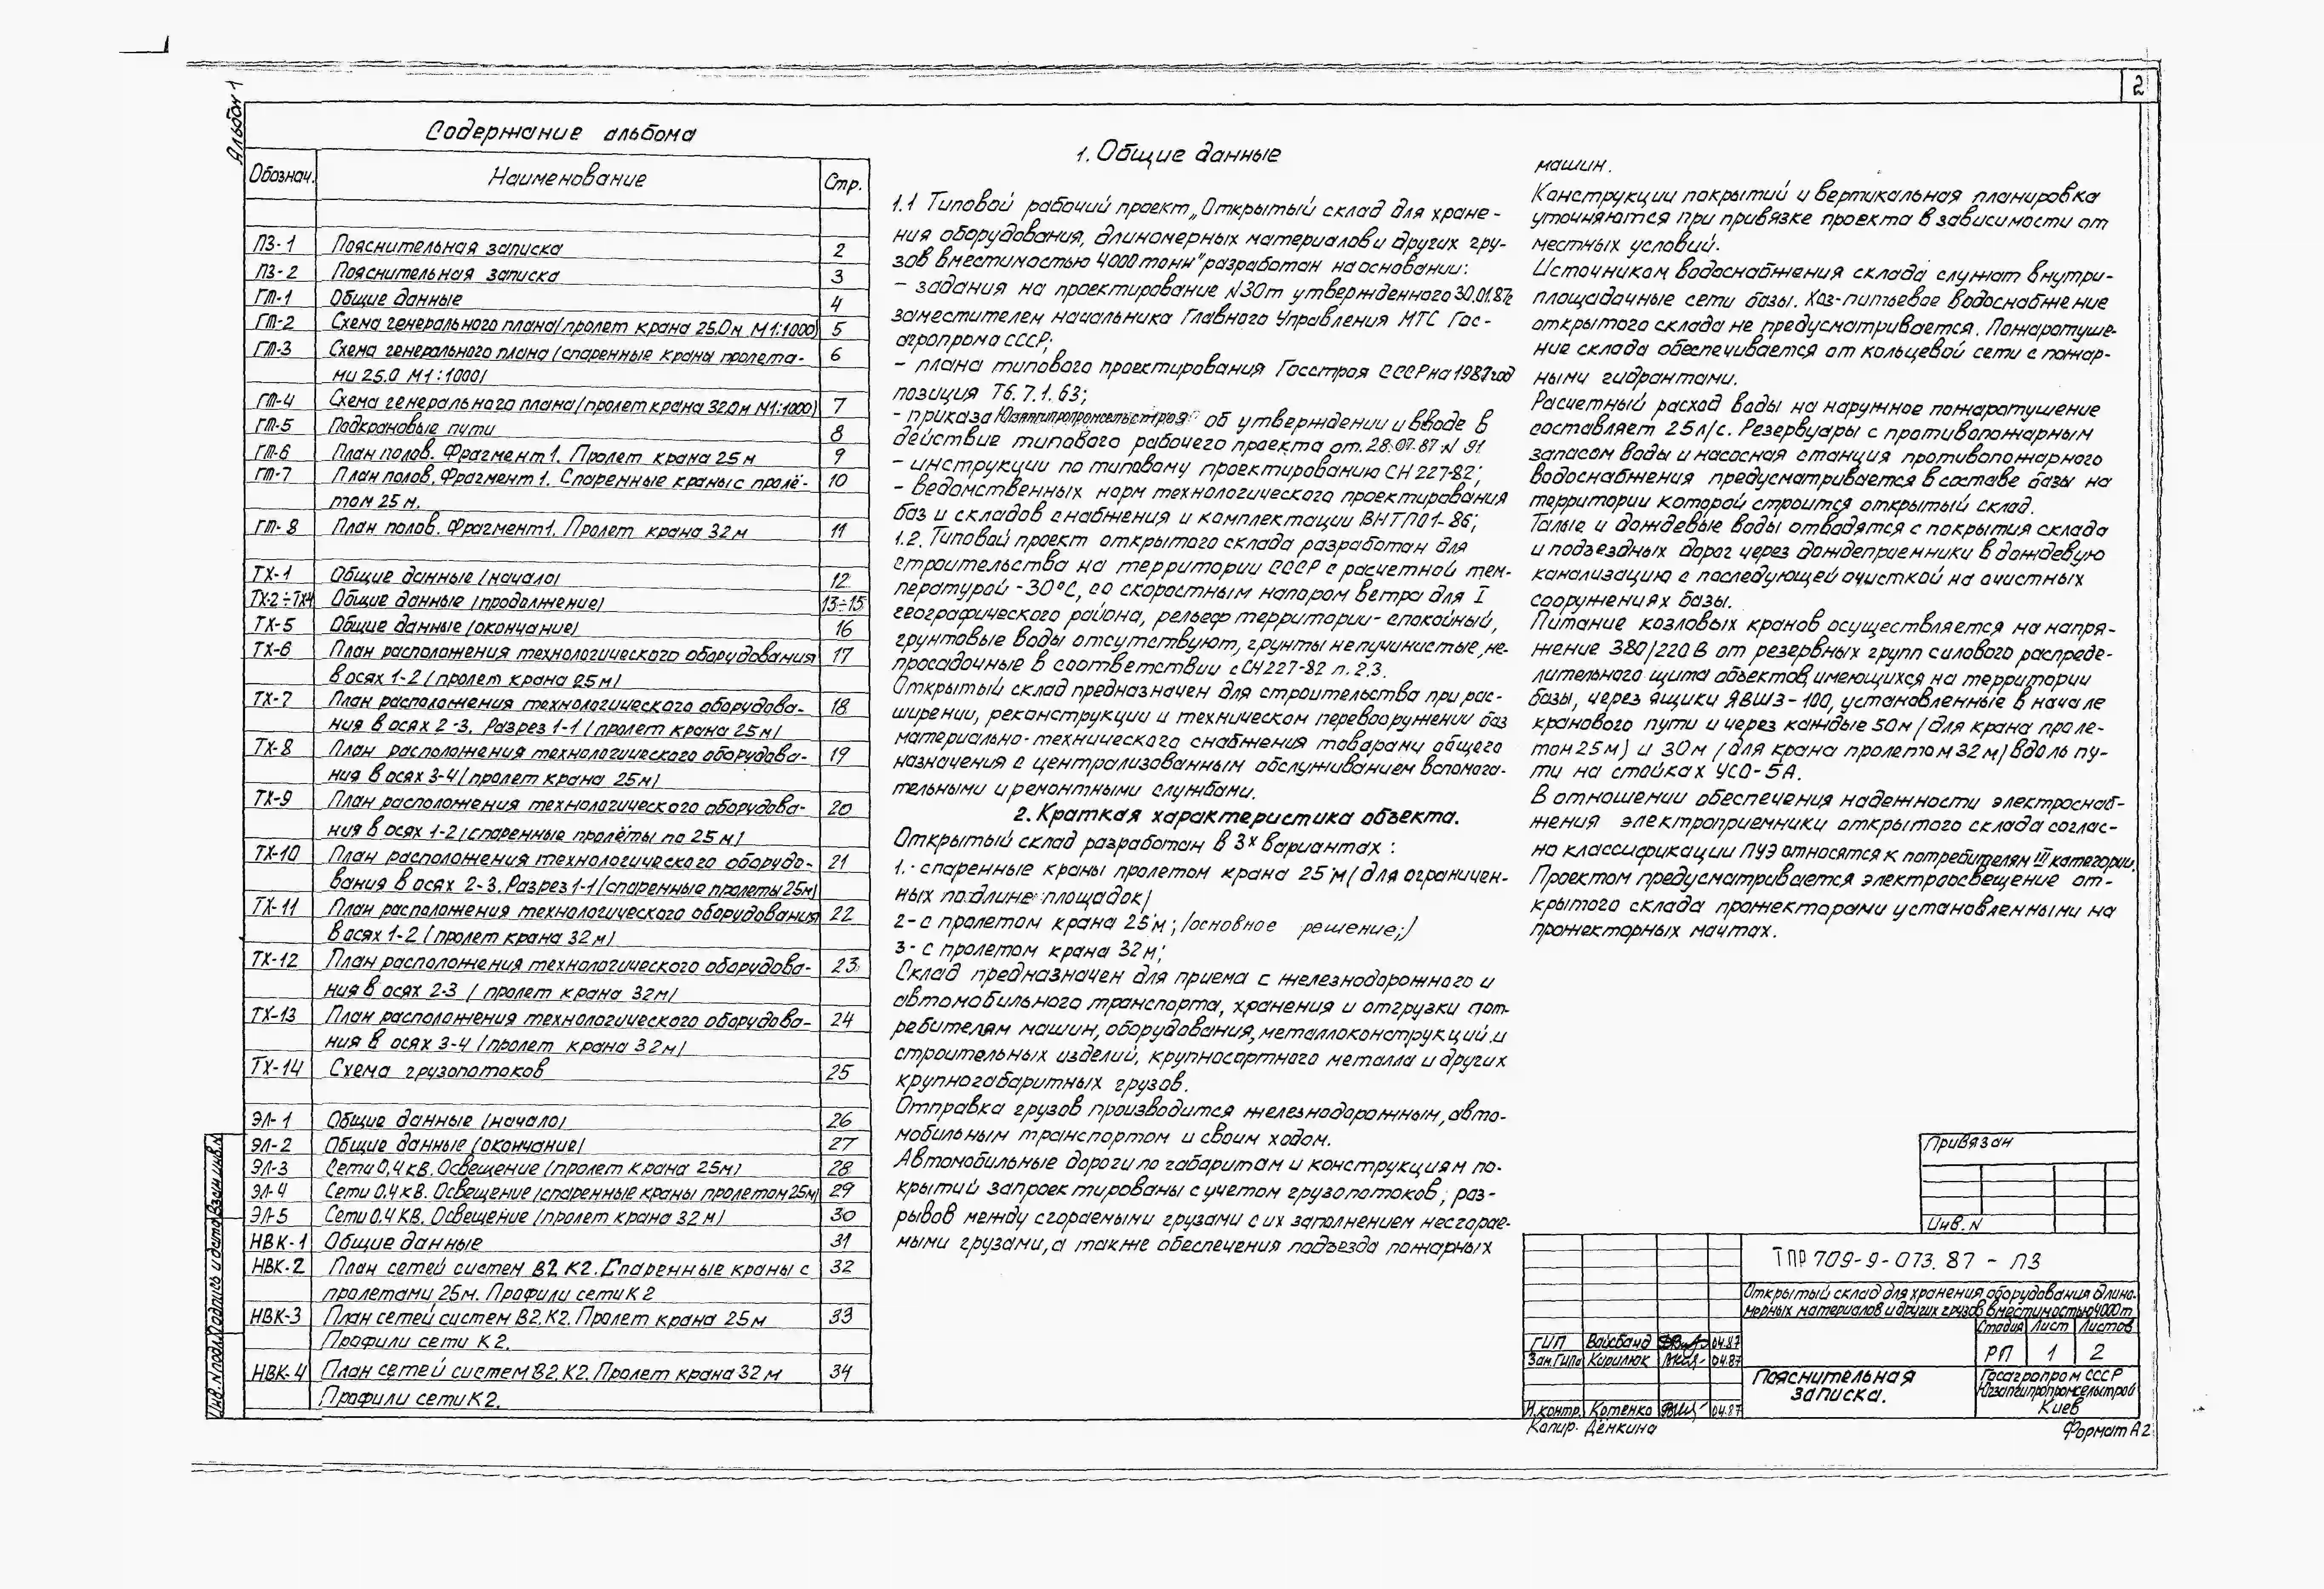 2
Альбом 1
Содержание альбома
Обознач. Наименование Стр.
ПЗ-1 Пояснительная записка 2
ПЗ-2 Пояснительная записка 3
ГТ-1 Общие данные 4
ГТ-2 Схема генерального плана /пролет крана 25.0м М1:1000/ 5
ГТ-3 Схема генерального плана /спаренные краны пролета- 6
ми 25.0 М1:1000/
ГТ-4 Схема генерального плана /пролет крана 32.0м М1:1000/ 7
ГТ-5 Подкрановые пути 8
ГТ-6 План полов. Фрагмент 1. Пролет крана 25м 9
ГТ-7 План полов. Фрагмент 1. Спаренные краны с пролё- 10
том 25 м.
ГТ-8 План полов. Фрагмент 1. Пролет крана 32м 11
ТХ-1 Общие данные /начало/ 12
ТХ-2÷ТХ4 Общие данные /продолжение/ 13÷15
ТХ-5 Общие данные /окончание/ 16
ТХ-6 План расположения технологического оборудования 17
в осях 1-2 /пролет крана 25м/
ТХ-7 План расположения технологического оборудова- 18
ния в осях 2-3. Разрез 1-1 /пролет крана 25м/
ТХ-8 План расположения технологического оборудова- 19
ния в осях 3-4 /пролет крана 25м/
ТХ-9 План расположения технологического оборудова- 20
ния в осях 1-2 /спаренные пролёты по 25м/
ТХ-10 План расположения технологического оборудо- 21
вания в осях 2-3. Разрез 1-1 /спаренные пролеты 25м/
ТХ-11 План расположения технологического оборудования 22
в осях 1-2 /пролет крана 32м/
ТХ-12 План расположения технологического оборудова- 23
ния в осях 2-3 /пролет крана 32м/
ТХ-13 План расположения технологического оборудова- 24
ния в осях 3-4 /пролет крана 32м/
ТХ-14 Схема грузопотоков 25
ЭЛ-1 Общие данные /начало/ 26
ЭЛ-2 Общие данные /окончание/ 27
ЭЛ-3 Сети 0,4 кВ. Освещение /пролет крана 25м/ 28
ЭЛ-4 Сети 0.4 кВ. Освещение /спаренные краны пролетом 25м/ 29
ЭЛ-5 Сети 0.4 кВ. Освещение /пролет крана 32м/ 30
НВК-1 Общие данные 31
НВК-2 План сетей систем В2 К2. Спаренные краны с 32
пролетами 25м. Профили сети К2
НВК-3 План сетей систем В2. К2. Пролет крана 25м 33
Профили сети К2.
НВК-4 План сетей систем В2. К2. Пролет крана 32м 34
Профили сети К2.
1. Общие данные
1.1 Типовой рабочий проект „Открытый склад для хране-
ния оборудования, длиномерных материалов и других гру-
зов вместимостью 4000 тонн" разработан на основании:
- задания на проектирование N30т утвержденного 30.01.87г
заместителем начальника Главного Управления МТС Гос-
агропрома СССР;
- плана типового проектирования Госстроя СССР на 1987 год
позиция Т6.7.1.63;
- приказа Югзапгипропромсельстроя об утверждении и вводе в
действие типового рабочего проекта от. 28.07.87 N 91
- инструкции по типовому проектированию СН 227-82;
- ведомственных норм технологического проектирования
баз и складов снабжения и комплектации ВНТП01-86;
1.2. Типовой проект открытого склада разработан для
строительства на территории СССР с расчетной тем-
пературой -30°С, со скоростным напором ветра для I
географического района, рельеф территории - спокойный,
грунтовые воды отсутствуют, грунты непучинистые, не-
просадочные в соответствии с СН 227-82 п. 2.3.
Открытый склад предназначен для строительства при рас-
ширении, реконструкции и техническом перевооружении баз
материально-технического снабжения товарами общего
назначения с централизованным обслуживанием вспомога-
тельными и ремонтными службами.
2. Краткая характеристика объекта.
Открытый склад разработан в 3х вариантах :
1.- спаренные краны пролетом крана 25 м /для ограничен-
ных по длине площадок/
2- с пролетом крана 25 м; /основное решение;/
3- с пролетом крана 32м;
Склад предназначен для приема с железнодорожного и
автомобильного транспорта, хранения и отгрузки пот-
ребителям машин, оборудования, металлоконструкций и
строительных изделий, крупносортного металла и других
крупногабаритных грузов.
Отправка грузов производится железнодорожным, авто-
мобильным транспортом и своим ходом.
Автомобильные дороги по габаритам и конструкциям по-
крытий запроектированы с учетом грузопотоков, раз-
рывов между сгораемыми грузами с их заполнением несгорае-
мыми грузами, а также обеспечения подъезда пожарных
машин.
Конструкции покрытий и вертикальная планировка
уточняются при привязке проекта в зависимости от
местных условий.
Источником водоснабжения склада служат внутри-
площадочные сети базы. Хоз-питьевое водоснабжение
открытого склада не предусматривается. Пожаротуше-
ние склада обеспечивается от кольцевой сети с пожар-
ными гидрантами.
Расчетный расход воды на наружное пожаротушение
составляет 25л/с. Резервуары с противопожарным
запасом воды и насосная станция противопожарного
водоснабжения предусматривается в составе базы на
территории которой строится открытый склад.
Талые и дождевые воды отводятся с покрытия склада
и подъездных дорог через дождеприемники в дождевую
канализацию с последующей очисткой на очистных
сооружениях базы.
Питание козловых кранов осуществляется на напря-
жение 380/220 В от резервных групп силового распреде-
лительного щита объектов, имеющихся на территории
базы, через ящики ЯВШ3-100, установленные в начале
кранового пути и через каждые 50м /для крана проле-
том 25м/ и 30м /для крана пролетом 32м/ вдоль пу-
ти на стойках УСО-5А.
В отношении обеспечения надежности электроснаб-
жения электроприемники открытого склада соглас-
но классификации ПУЭ относятся к потребителям III категории.
Проектом предусматривается электроосвещение от-
крытого склада прожекторами установленными на
прожекторных мачтах.
Привязан
Инв. N
ТПР 709-9-073.87 - ПЗ
Открытый склад для хранения оборудования длино-
мерных материалов и других грузов вместимостью 4000т
Стадия Лист Листов
РП 1 2
ГИП Вайсбанд 04.87
Зам.ГИПа Кирилюк 04.87
Н.контр. Котенко 04.87
Пояснительная
записка.
Госагропром СССР
Югзапгипропромсельстрой
Киев
Копир. Дёнкина
Формат А2
Инв. N подл. Подпись и дата Взам.инв.N